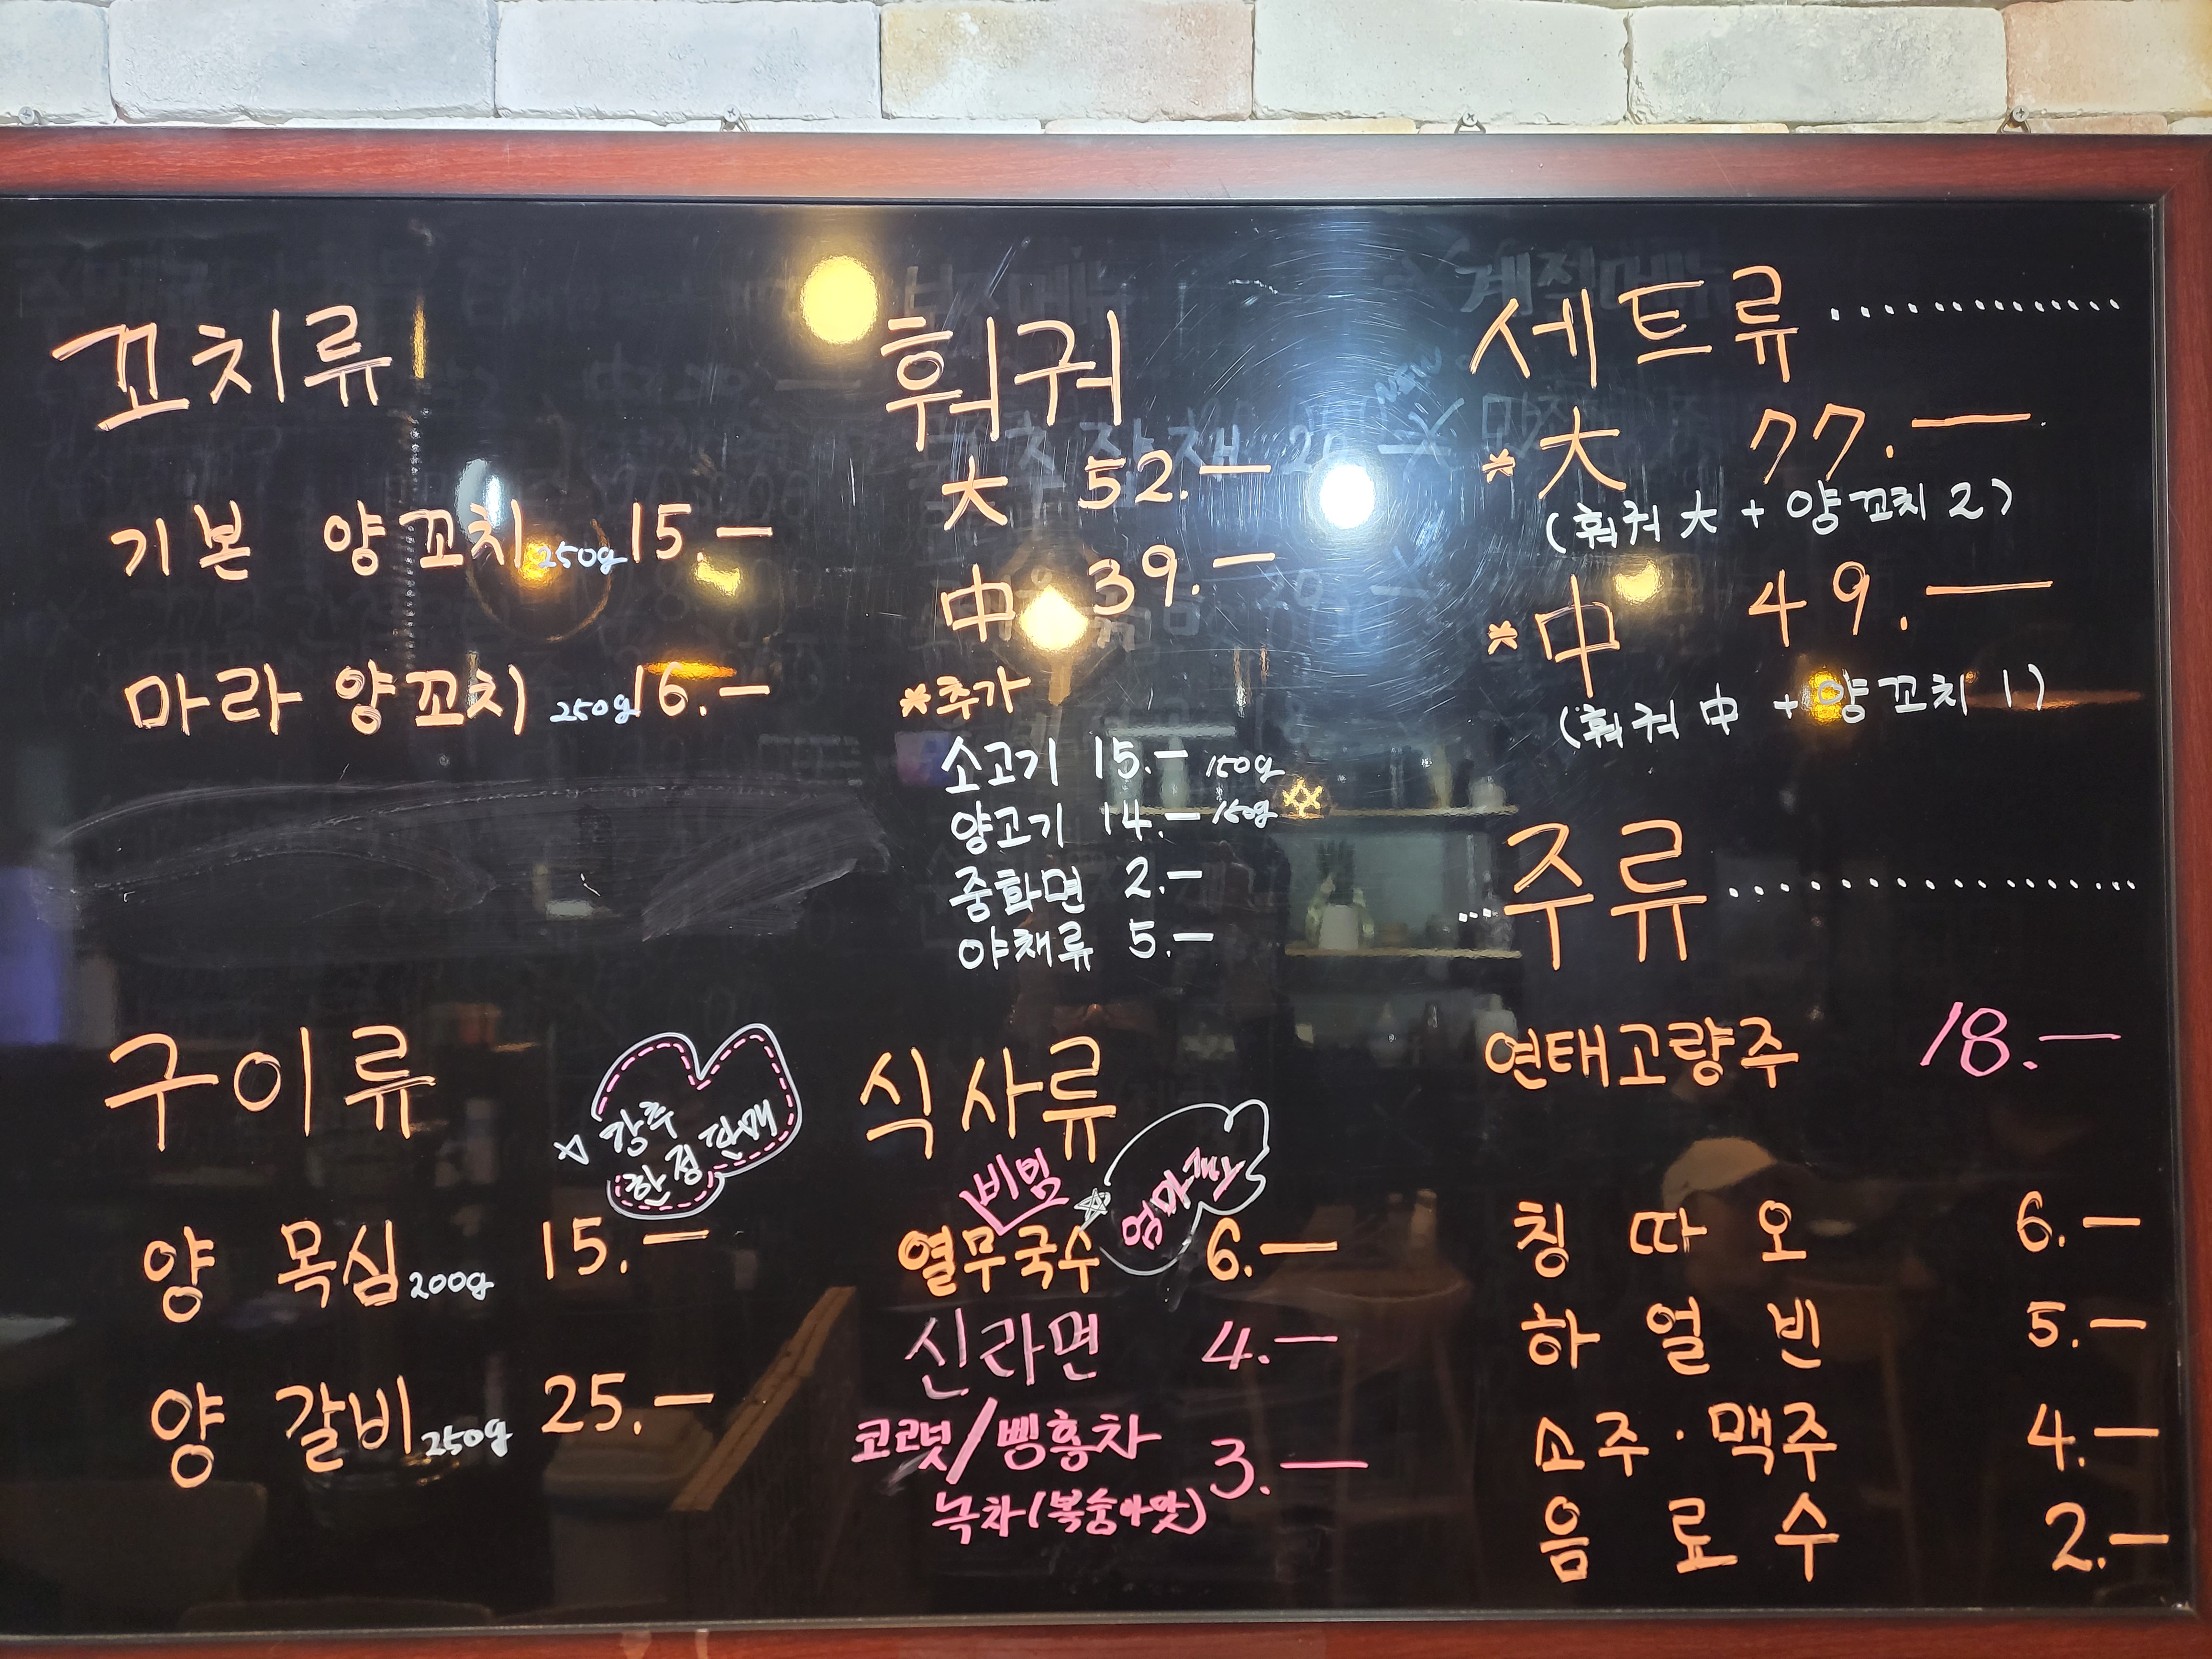 꼬치류
기본 양꼬치 250g 15.—
마라 양꼬치 250g 16.—
구이류
강추
한정 판매
양 목심 200g 15.—
양 갈비 250g 25.—
훠궈
大 52.—
中 39.—
*추가
소고기 15.— 150g
양고기 14.— 150g
중화면 2.—
야채류 5.—
식사류
비빔
열무국수 6.—
신라면 4.—
코코넛/삥홍차
녹차(복숭아맛) 3.—
세트류..............
*大 77.—
(훠궈 大 + 양꼬치 2)
*中 49.—
(훠궈 中 + 양꼬치 1)
...주류..............
연태고량주 18.—
칭따오 6.—
하얼빈 5.—
소주·맥주 4.—
음료수 2.—